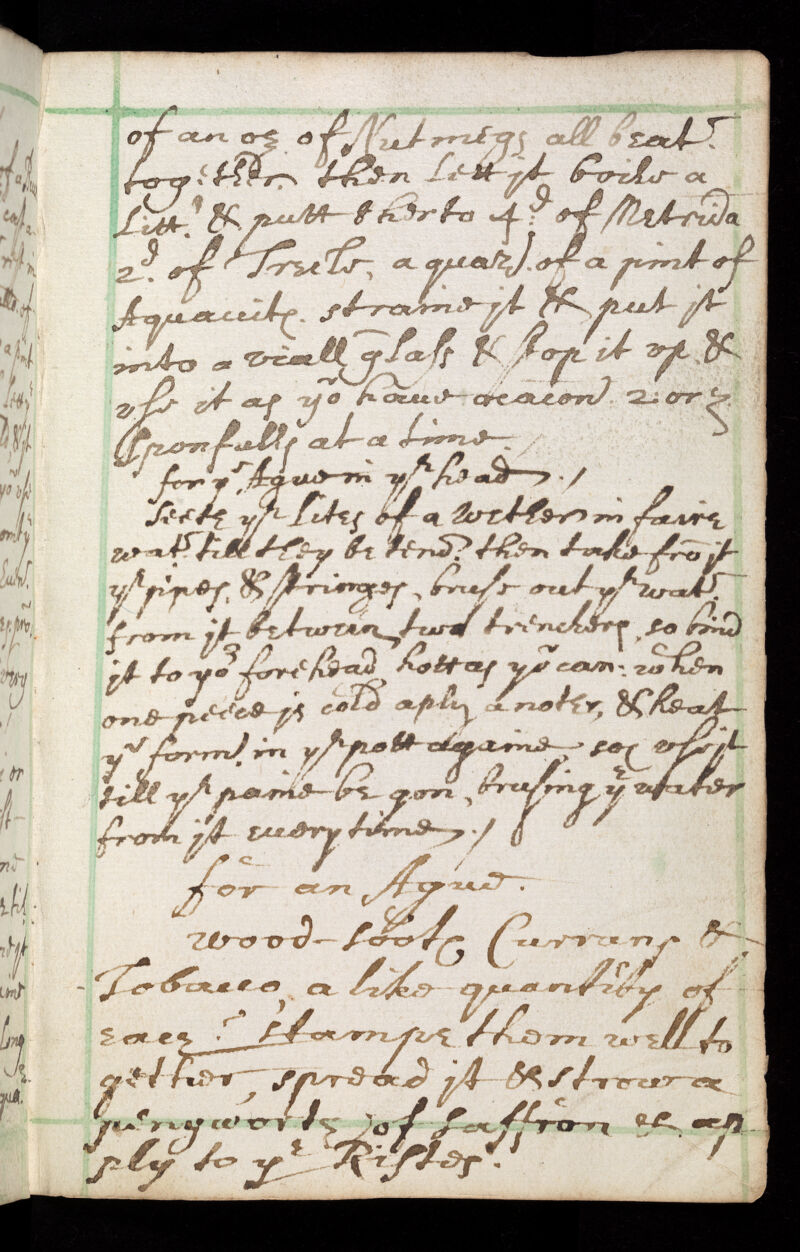 of an oz of Nutmegs all beatr
together then lett it boile a
litt: & putt therto 4d of Metrida
2d. of Trecle, a quar). of a pint of
Aquavite. straine jt & put jt
into a viall glass & stop it vp &
vse it as yo have ocacon 2 or 3
sponfulls at a time
for ye Ague in ye head
seete ye lites of a Wether in faire
watr till they be tendr then take fro jt
ye pipes, & stringes, bruse out ye watr
from jt betwein two trenchers, so bind
jt to yor forehead hott as yo can: when
one peece js cold aply anoter, & heat
ye formr in ye pott againe, soe vse jt
till ye paine be gon, brusing ye water
from jt every time
for an Ague.
wood-soote Currans &
Tobacco, a like quantity of
each: stampe them well to
gether, spread jt & strow a
penyworte of saffron & ap
ply to ye Ristes.